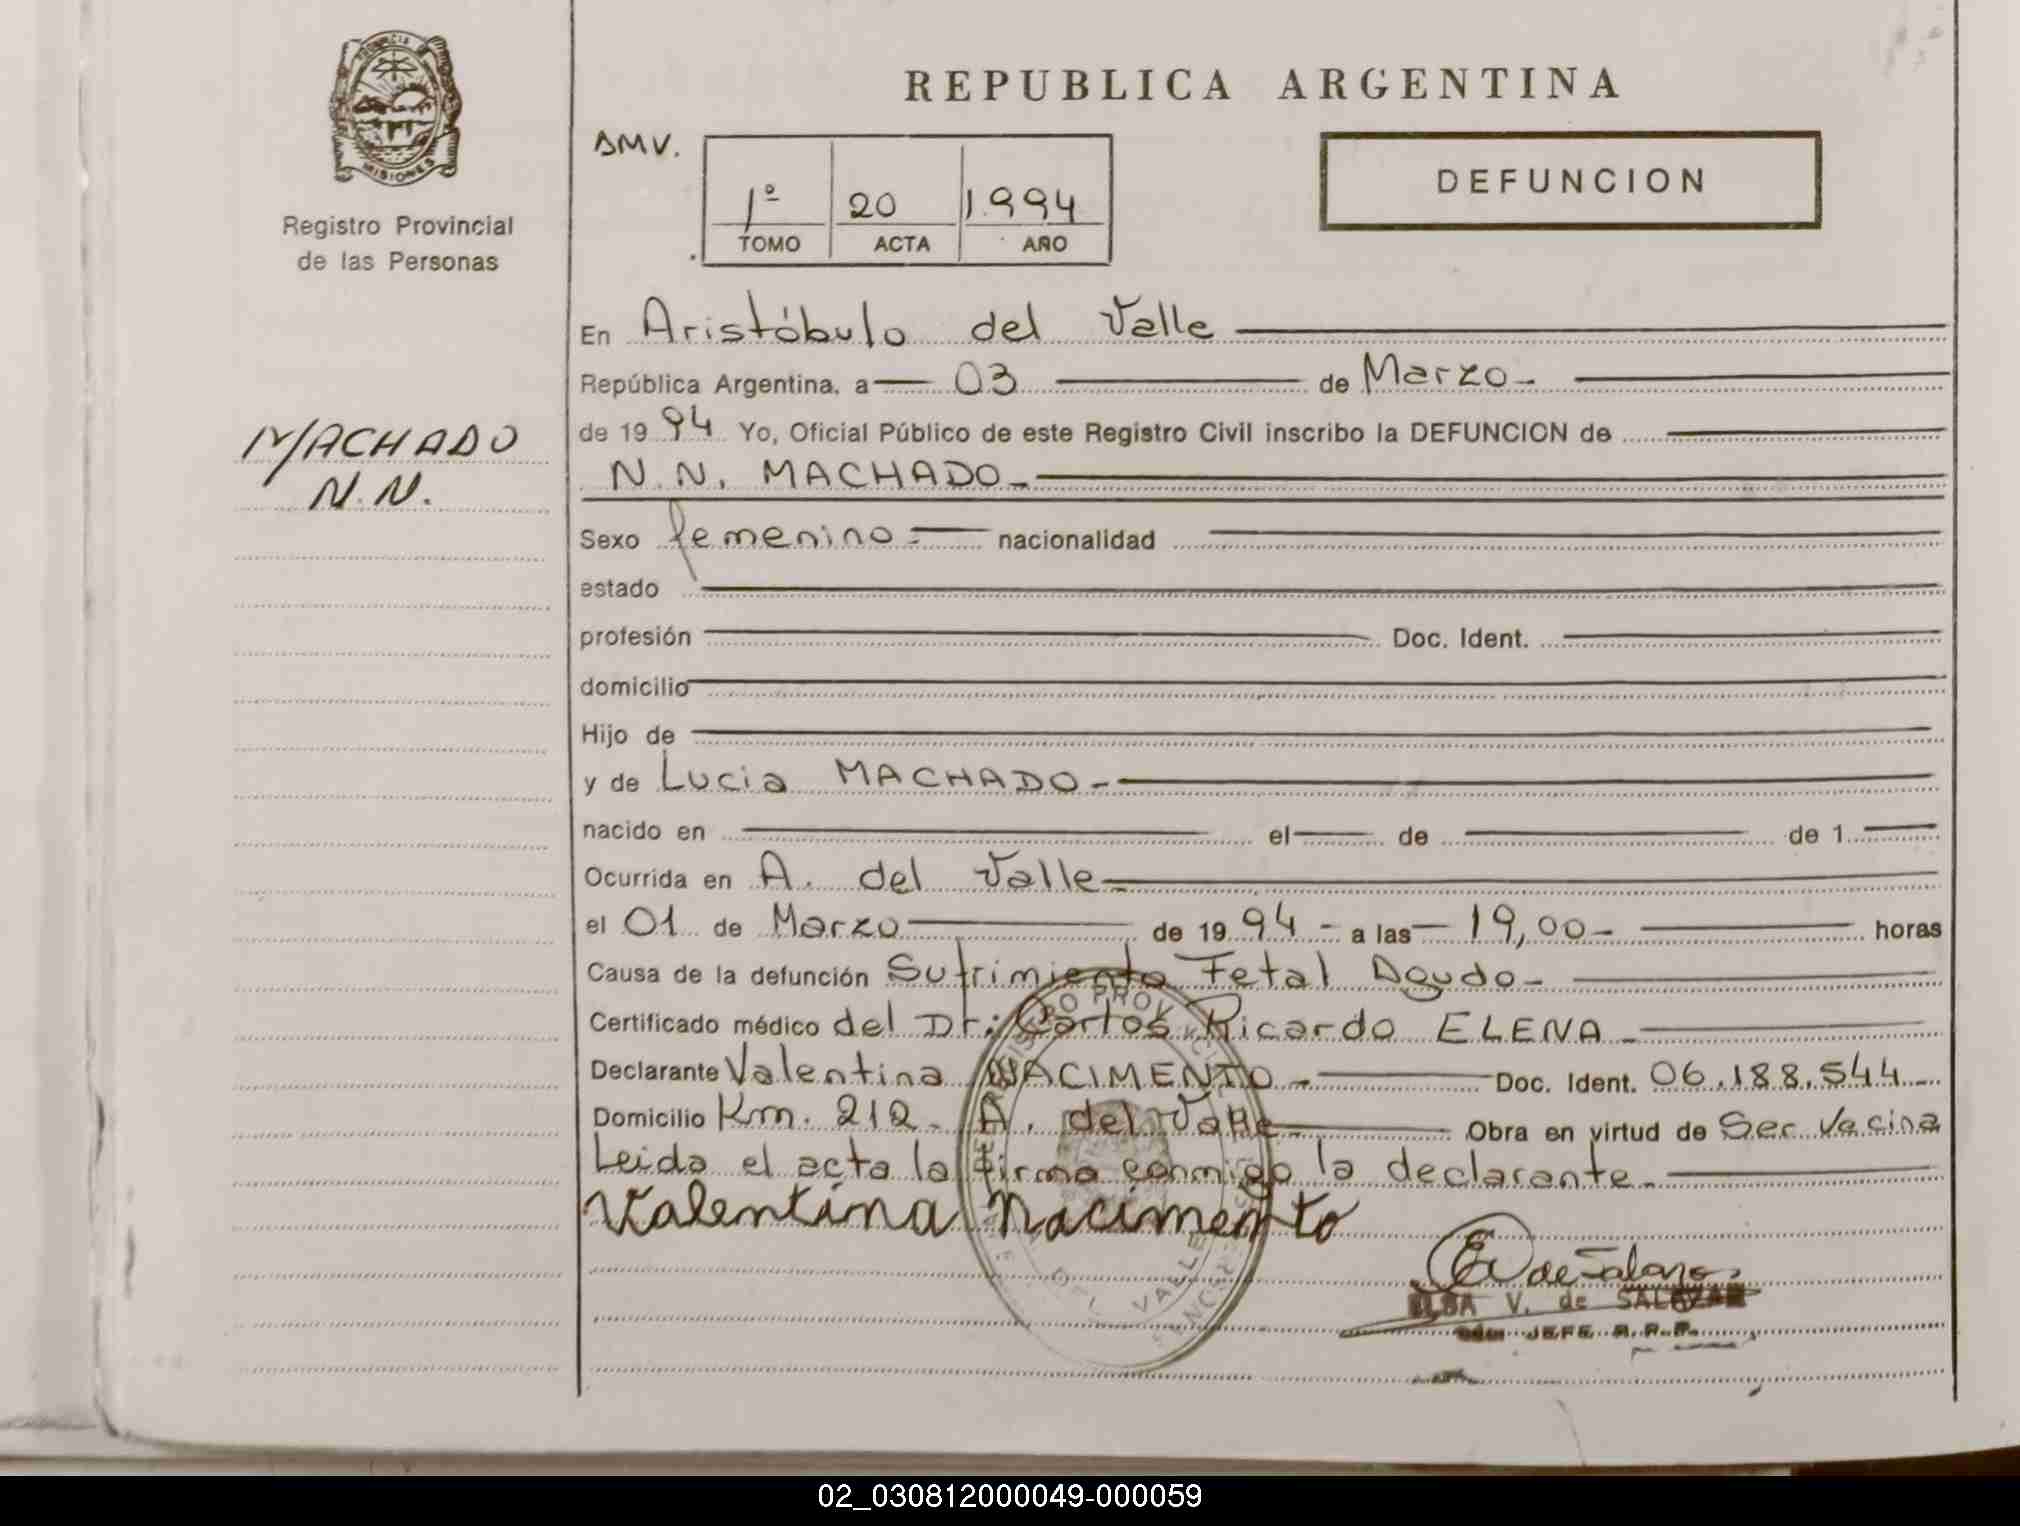 PROVINCIA DE
MISIONES
Registro Provincial
de las Personas
MACHADO
N.N.
REPUBLICA ARGENTINA
DMV.
1º 20 1994
TOMO ACTA AÑO
DEFUNCION
En Aristóbulo del Valle
República Argentina, a 03 de Marzo-
de 1994 Yo, Oficial Público de este Registro Civil inscribo la DEFUNCION de
N.N. MACHADO-
Sexo femenino- nacionalidad
estado
profesión Doc. Ident.
domicilio
Hijo de
y de Lucia MACHADO-
nacido en el de de 1
Ocurrida en A. del Valle-
el 01 de Marzo de 1994- a las 19,00- horas
Causa de la defunción Sufrimiento Fetal Agudo-
Certificado médico del Dr: Carlos Ricardo ELENA-
Declarante Valentina NACIMENTO- Doc. Ident. 06.188.544-
Domicilio Km. 212- A. del Valle- Obra en virtud de Ser vecina
Leida el acta la firma conmigo la declarante-
Valentina Nacimento
EV de Salazar
ELSA V. de SALAZAR
JEFE R.P.P.
DEL VALLE
02_030812000049-000059